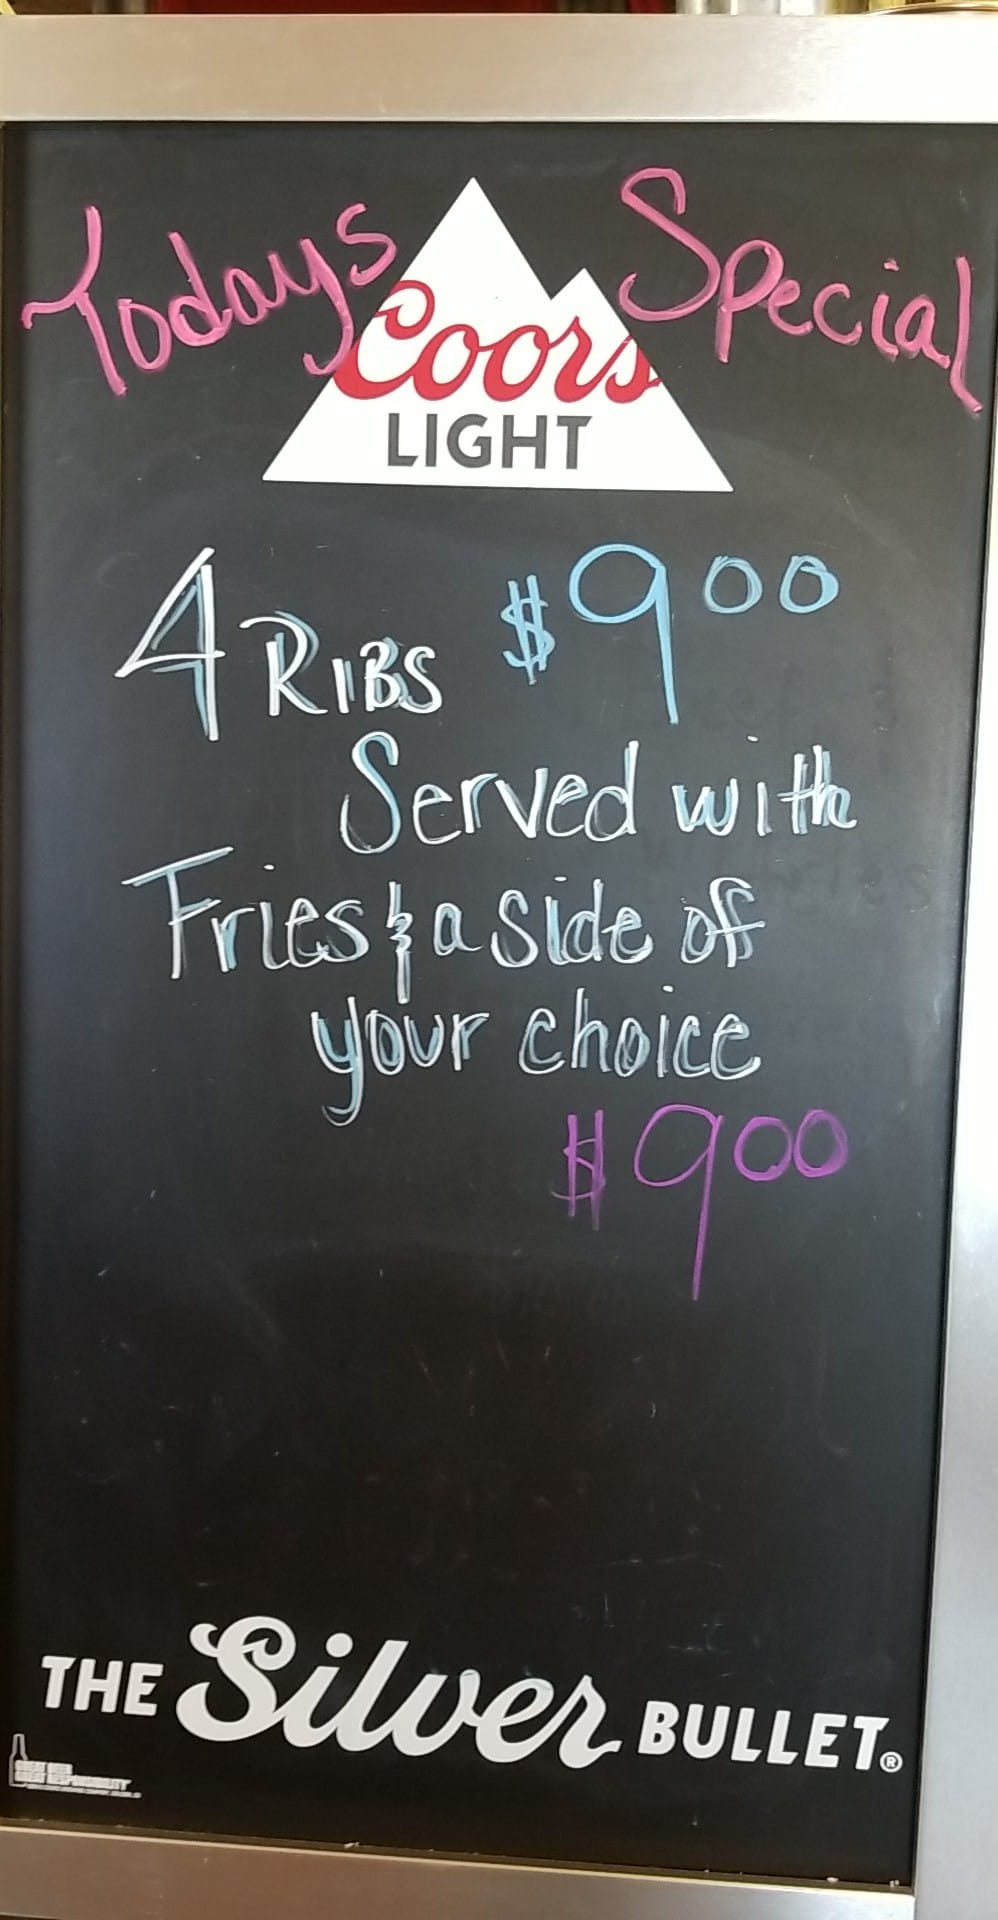 Todays Special
Coors
LIGHT
4 RIBS $9 00
Served with
Fries & a side of
your choice
$9 00
THE Silver BULLET®
GREAT BEER
GREAT RESPONSIBILITY